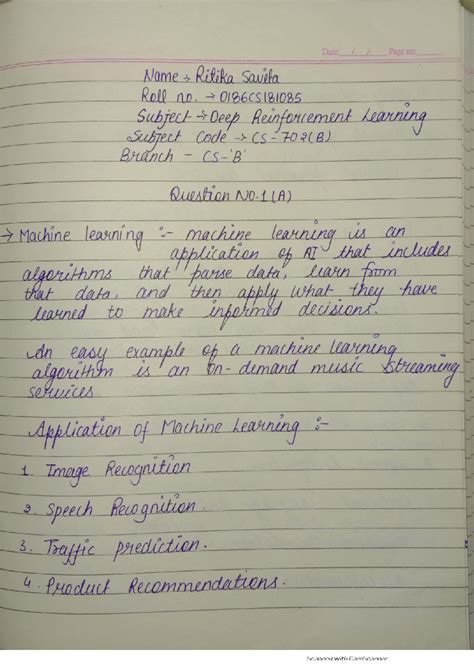 Date: / / Page no:
Name → Ritika Savita
Roll no. → 0186CS181085
Subject → Deep Reinforcement Learning
Subject Code → CS-702(B)
Branch - CS-'B'
Question No.1(A)
→ Machine learning :- machine learning is an
application of AI that includes
algorithms that parse data, learn from
that data, and then apply what they have
learned to make informed decisions.
An easy example of a machine learning
algorithm is an on-demand music streaming
services
Application of Machine Learning :-
1. Image Recognition
2. Speech Recognition.
3. Traffic prediction.
4. Product Recommendations.
Scanned with CamScanner